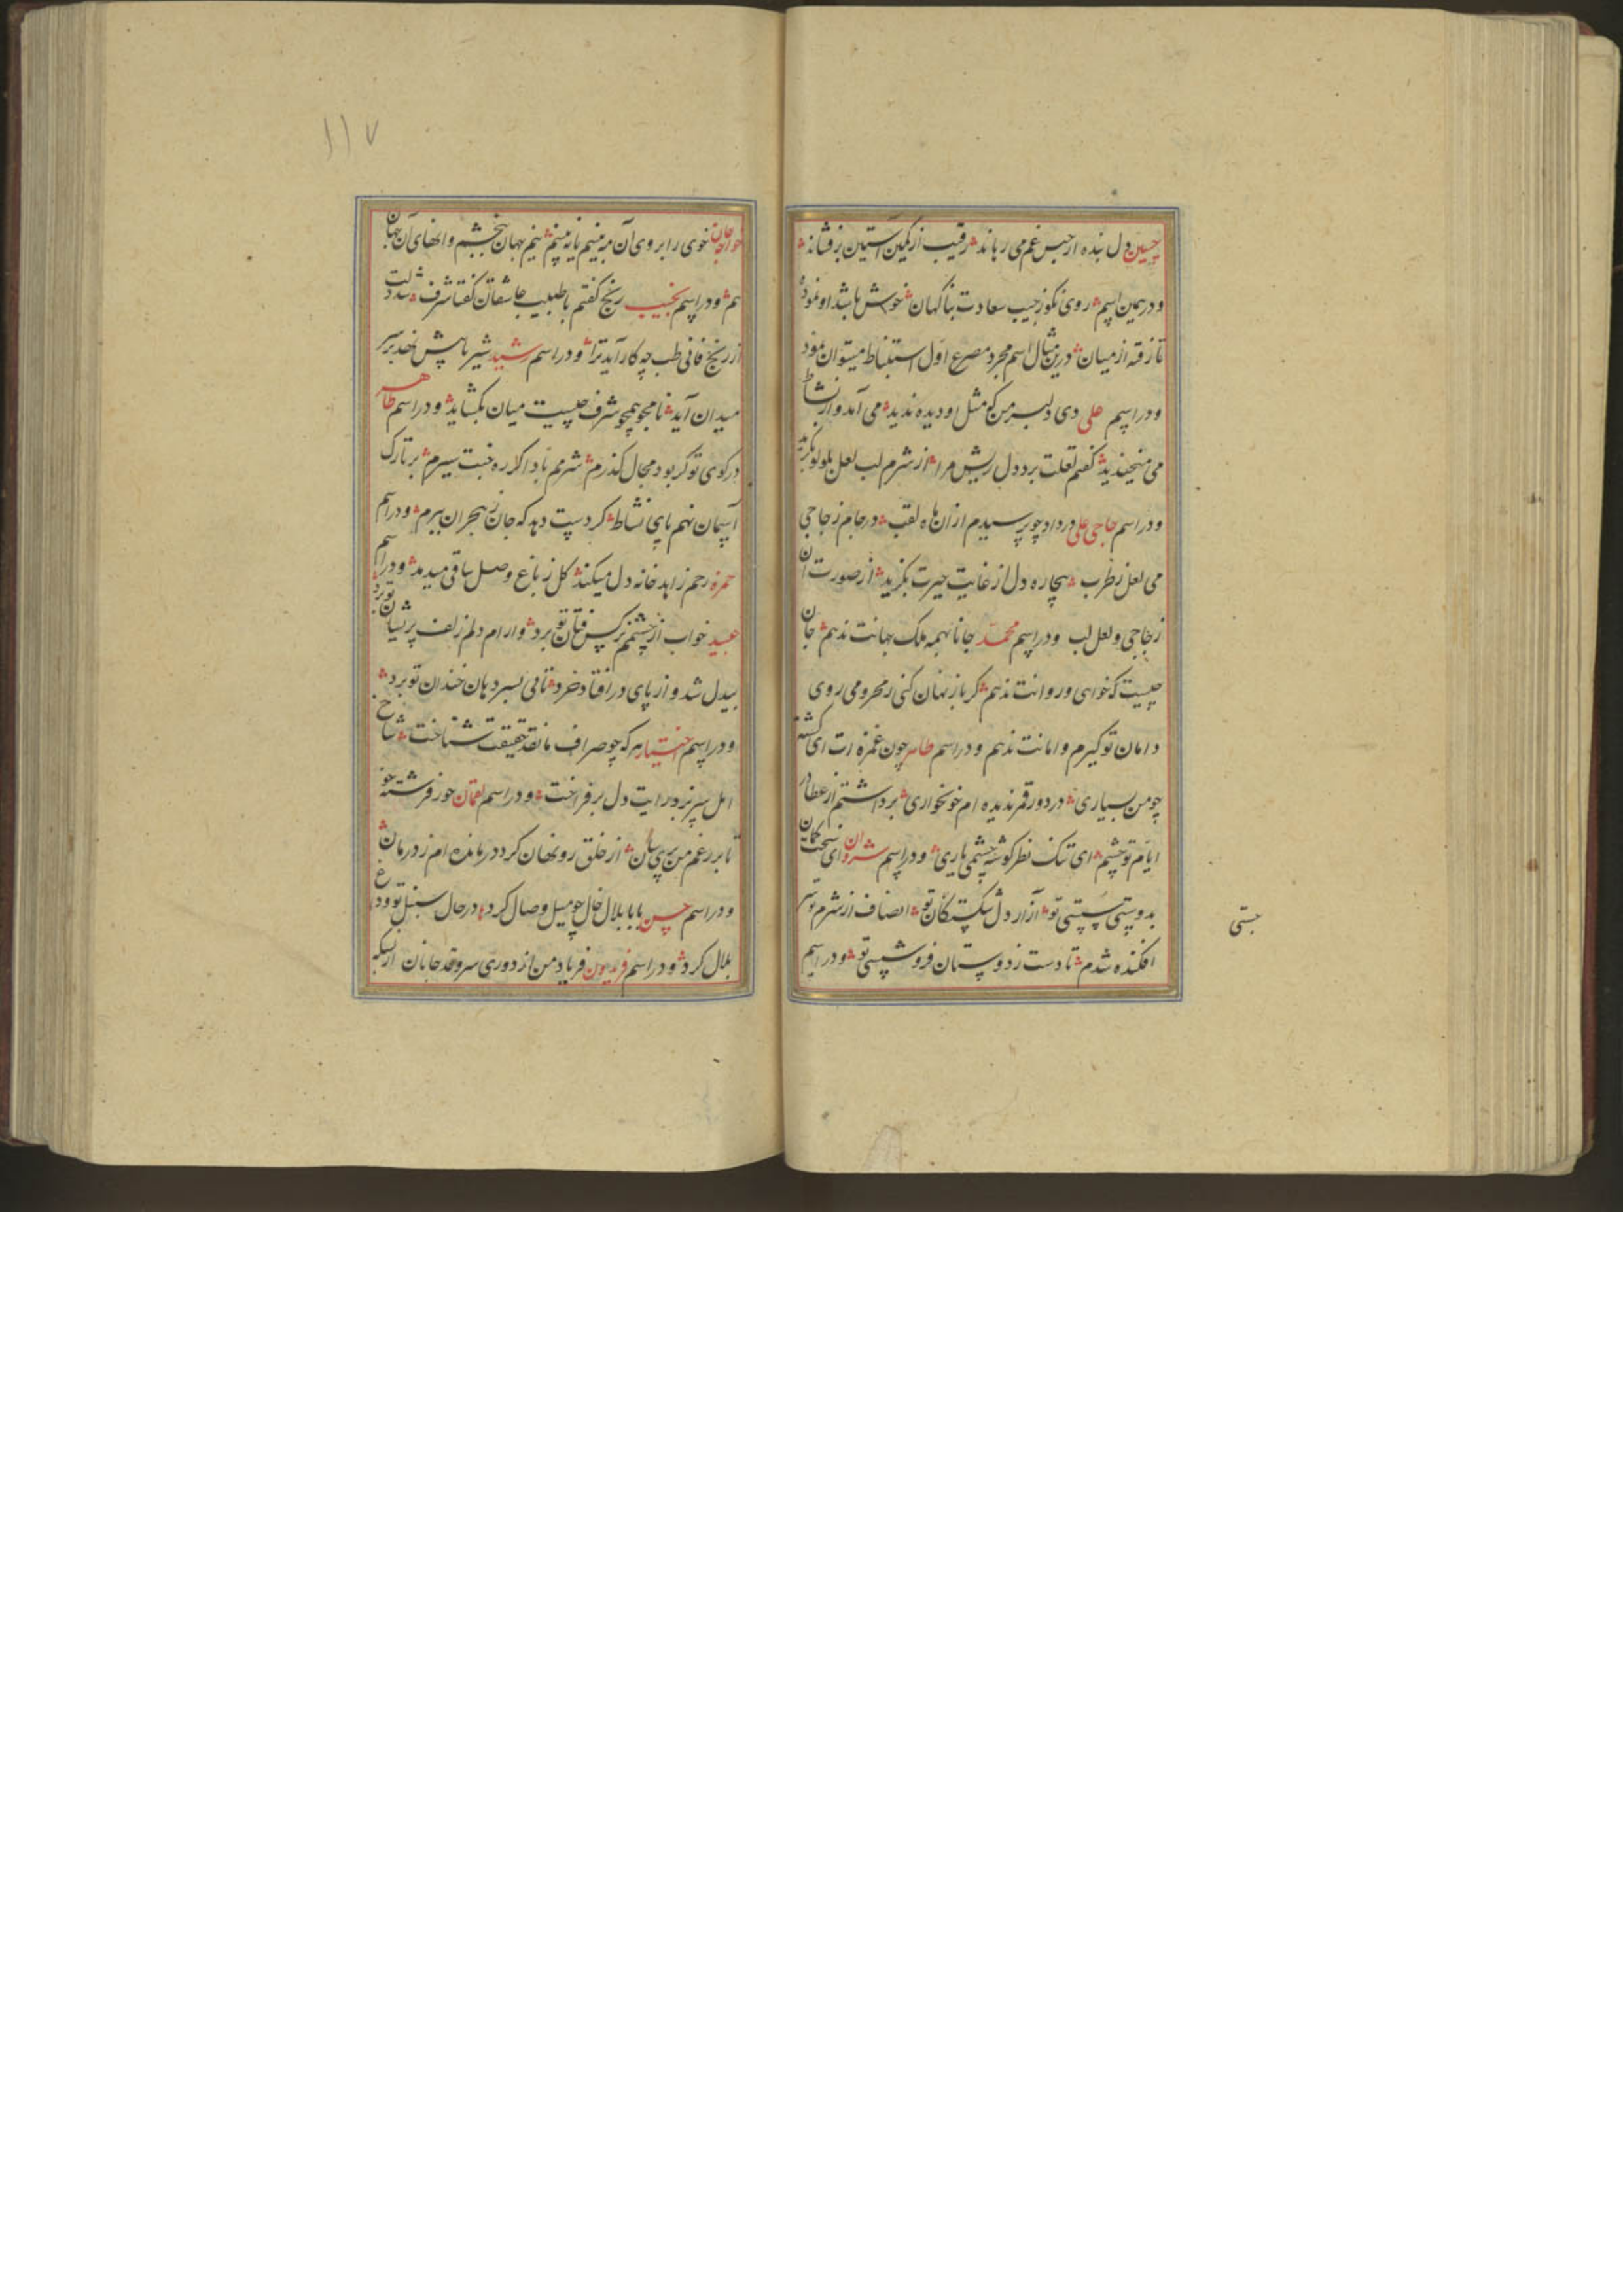 حسین دل بنده از حبس غم می رهاند رقیب از کمین آستین برفشاند
و درهمین اسم روی نکو ز جیب سعادت بناکهان خوش باشد او نمود
تا زقه از میان درین مثال اسم مجرد مصرع اول استنباط میتوان نمود
و در اسم علی دی دلبر من کو مثل او دیده ندید می آمد و از نشاط
می خندید کفتم لعلت برد دل ریش مرا از شرم لب لعل بلولو
و در اسم حاجی علی در داد چو پرسیدم از ان ماه لقب در جام زجاجی
می لعل ز طرب بیچاره دل از غایت حیرت بکزید از صورت آن
زجاجی و لعل لب و در اسم محمد جانا همه ملک جهانت ندهم جان
چیست که خواهی و روانت ندهم کر باز نهان کنی ز محرومی روی
دامان تو کیرم و امانت ندهم و در اسم طاهر چون غمزه ات ای کشته
چو من بسیاری در دور قمر ندیده ام خونخواری برداشتم از عطار
ایام تو چشم ای تنک نظر کوشه چشمی باری و در اسم شروان ای سخت کمان
بدوستی سستی تو آزار دل شکستکان تو انصاف از شرم تو سر
افکنده شدم تا دست ز دوستان فرو شستی تو و در اسم
جستی
۱۱۷
خواجه جان خوی را بروی آن مه بینیم یا نه بینیم بینیم جهان بچشم وانهای آن جهان
هم و در اسم نجیب رنج کفتم با طبیب عاشقان کفتا شرف
از رنج فانی طب چه کار آید ترا و در اسم رشید شیر پایش نهد بر سر
میدان آید نامجو همچو شرف چیست میان بکشاید و در اسم طاهر
در کوی تو کر بود مجال کذرم شرمم باد اکر ره جنت سپرم بر تارک
آسمان نهم پای نشاط کر دست دهد که جان ز هجران ببرم و در اسم
حمزه رحم زاهد خانه دل میکند کل ز باغ وصل ساقی میدمد و در اسم
عبید خواب از چشمم نرکس فتان تو برد وارام دلم زلف پریشان تو برد
بیدل شد و از پای در افتاد خرد تا می بسر دهان خندان تو برد
و در اسم اختیار هر که چو صراف ما نقد حقیقت شناخت شاخ
امل سر نزد رایت دل برفراخت و در اسم لقمان حور فرشته خو
تا بر رغم من بی سامان از خلق رو نهان کرد درمانده ام ز درمان
و در اسم حسن بابا بلال خال چو میل وصال کرد در حال سنبل تو ودع
بلال کرد و در اسم فریدون فریاد من از دوری سرو قد جانان از بسکه